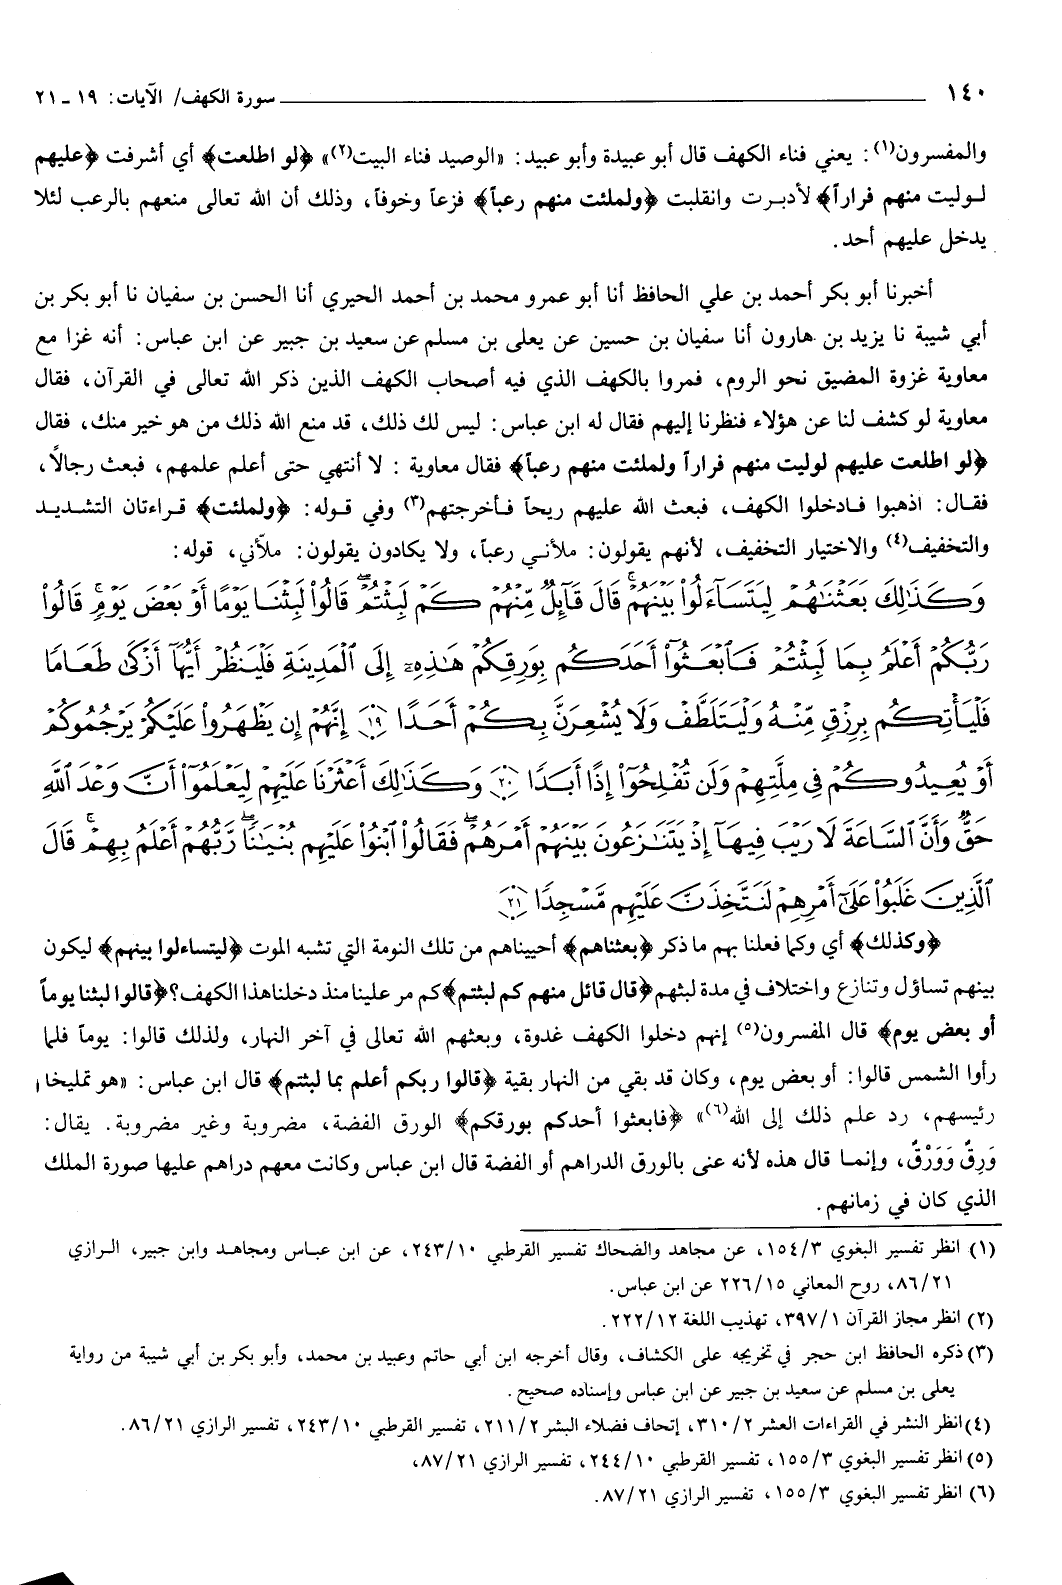 ١٤٠ سورة الكهف/ الآيات: ١٩ ـ ٢١
والمفسرون(١): يعني فناء الكهف قال أبو عبيدة وأبو عبيد: «الوصيد فناء البيت(٢)» ﴿لو اطلعت﴾ أي أشرفت ﴿عليهم
لوليت منهم فراراً﴾ لأدبرت وانقلبت ﴿ولملئت منهم رعباً﴾ فزعاً وخوفاً، وذلك أن الله تعالى منعهم بالرعب لئلا
يدخل عليهم أحد.
أخبرنا أبو بكر أحمد بن علي الحافظ أنا أبو عمرو محمد بن أحمد الحيري أنا الحسن بن سفيان نا أبو بكر بن
أبي شيبة نا يزيد بن هارون أنا سفيان بن حسين عن يعلى بن مسلم عن سعيد بن جبير عن ابن عباس: أنه غزا مع
معاوية غزوة المضيق نحو الروم، فمروا بالكهف الذي فيه أصحاب الكهف الذين ذكر الله تعالى في القرآن، فقال
معاوية لو كشف لنا عن هؤلاء فنظرنا إليهم فقال له ابن عباس: ليس لك ذلك، قد منع الله ذلك من هو خير منك، فقال
﴿لو اطلعت عليهم لوليت منهم فراراً ولملئت منهم رعباً﴾ فقال معاوية : لا أنتهي حتى أعلم علمهم، فبعث رجالاً،
فقال: اذهبوا فادخلوا الكهف، فبعث الله عليهم ريحاً فأخرجتهم(٣) وفي قوله: ﴿ولملئت﴾ قراءتان التشديد
والتخفيف(٤) والاختيار التخفيف، لأنهم يقولون: ملأني رعباً، ولا يكادون يقولون: ملّأني، قوله:
وَكَذَٰلِكَ بَعَثْنَٰهُمْ لِيَتَسَآءَلُوا۟ بَيْنَهُمْ ۚ قَالَ قَآئِلٌ مِّنْهُمْ كَمْ لَبِثْتُمْ ۖ قَالُوا۟ لَبِثْنَا يَوْمًا أَوْ بَعْضَ يَوْمٍ ۚ قَالُوا۟
رَبُّكُمْ أَعْلَمُ بِمَا لَبِثْتُمْ فَٱبْعَثُوٓا۟ أَحَدَكُم بِوَرِقِكُمْ هَٰذِهِۦٓ إِلَى ٱلْمَدِينَةِ فَلْيَنظُرْ أَيُّهَآ أَزْكَىٰ طَعَامًا
فَلْيَأْتِكُم بِرِزْقٍ مِّنْهُ وَلْيَتَلَطَّفْ وَلَا يُشْعِرَنَّ بِكُمْ أَحَدًا ۝١٩ إِنَّهُمْ إِن يَظْهَرُوا۟ عَلَيْكُمْ يَرْجُمُوكُمْ
أَوْ يُعِيدُوكُمْ فِى مِلَّتِهِمْ وَلَن تُفْلِحُوٓا۟ إِذًا أَبَدًا ۝٢٠ وَكَذَٰلِكَ أَعْثَرْنَا عَلَيْهِمْ لِيَعْلَمُوٓا۟ أَنَّ وَعْدَ ٱللَّهِ
حَقٌّ وَأَنَّ ٱلسَّاعَةَ لَا رَيْبَ فِيهَآ إِذْ يَتَنَٰزَعُونَ بَيْنَهُمْ أَمْرَهُمْ ۖ فَقَالُوا۟ ٱبْنُوا۟ عَلَيْهِم بُنْيَٰنًا ۖ رَّبُّهُمْ أَعْلَمُ بِهِمْ ۚ قَالَ
ٱلَّذِينَ غَلَبُوا۟ عَلَىٰٓ أَمْرِهِمْ لَنَتَّخِذَنَّ عَلَيْهِم مَّسْجِدًا ۝٢١
﴿وكذلك﴾ أي وكما فعلنا بهم ما ذكر ﴿بعثناهم﴾ أحييناهم من تلك النومة التي تشبه الموت ﴿ليتساءلوا بينهم﴾ ليكون
بينهم تساؤل وتنازع واختلاف في مدة لبثهم ﴿قال قائل منهم كم لبثتم﴾ كم مر علينا منذ دخلنا هذا الكهف؟ ﴿قالوا لبثنا يوماً
أو بعض يوم﴾ قال المفسرون(٥) إنهم دخلوا الكهف غدوة، وبعثهم الله تعالى في آخر النهار، ولذلك قالوا: يوماً فلما
رأوا الشمس قالوا: أو بعض يوم، وكان قد بقي من النهار بقية ﴿قالوا ربكم أعلم بما لبثتم﴾ قال ابن عباس: «هو تمليخا
رئيسهم، رد علم ذلك إلى الله(٦)» ﴿فابعثوا أحدكم بورقكم﴾ الورق الفضة، مضروبة وغير مضروبة. يقال:
وَرِقٌ وَوَرْقٌ، وإنما قال هذه لأنه عنى بالورق الدراهم أو الفضة قال ابن عباس وكانت معهم دراهم عليها صورة الملك
الذي كان في زمانهم.
(١) انظر تفسير البغوي ١٥٤/٣، عن مجاهد والضحاك تفسير القرطبي ٢٤٣/١٠، عن ابن عباس ومجاهد وابن جبير، الرازي
٨٦/٢١، روح المعاني ٢٢٦/١٥ عن ابن عباس.
(٢) انظر مجاز القرآن ٣٩٧/١، تهذيب اللغة ٢٢٢/١٢.
(٣) ذكره الحافظ ابن حجر في تخريجه على الكشاف، وقال أخرجه ابن أبي حاتم وعبيد بن محمد، وأبو بكر بن أبي شيبة من رواية
يعلى بن مسلم عن سعيد بن جبير عن ابن عباس وإسناده صحيح.
(٤) انظر النشر في القراءات العشر ٣١٠/٢، إتحاف فضلاء البشر ٢١١/٢، تفسير القرطبي ٢٤٣/١٠، تفسير الرازي ٨٦/٢١.
(٥) انظر تفسير البغوي ١٥٥/٣، تفسير القرطبي ٢٤٤/١٠، تفسير الرازي ٨٧/٢١،
(٦) انظر تفسير البغوي ١٥٥/٣، تفسير الرازي ٨٧/٢١.